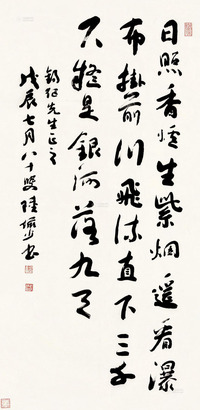 日照香炉生紫烟遥看瀑
布掛前川飛流直下三千
只疑是銀河落九天
先生正之
戊辰七月八十叟陸儼少書